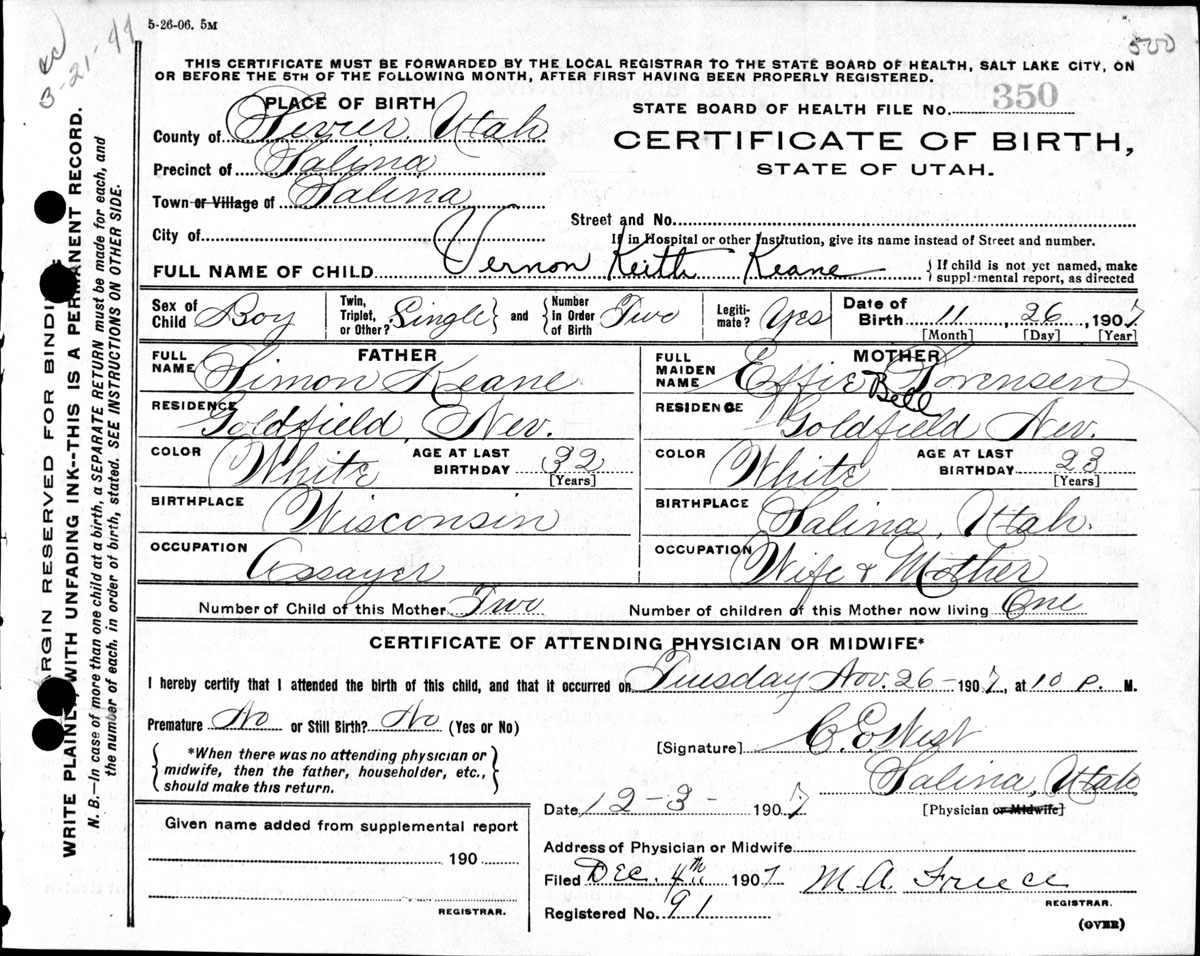 5-26-06. 5M
3-21-44
500
THIS CERTIFICATE MUST BE FORWARDED BY THE LOCAL REGISTRAR TO THE STATE BOARD OF HEALTH, SALT LAKE CITY, ON
OR BEFORE THE 5TH OF THE FOLLOWING MONTH, AFTER FIRST HAVING BEEN PROPERLY REGISTERED.
PLACE OF BIRTH
STATE BOARD OF HEALTH FILE No. 350
County of Sevier, Utah
CERTIFICATE OF BIRTH,
Precinct of Salina
STATE OF UTAH.
Town or Village of Salina
Street and No.
City of
If in Hospital or other Institution, give its name instead of Street and number.
FULL NAME OF CHILD Vernon Keith Keane {If child is not yet named, make supplemental report, as directed
Sex of Child Boy Twin, Triplet, or Other? Single} and {Number in Order of Birth Two Legiti-mate? Yes Date of Birth 11, 26, 1907
[Month] [Day] [Year]
FATHER MOTHER
FULL NAME Simon Keane FULL MAIDEN NAME Effie Bell Sorensen
RESIDENCE Goldfield, Nev. RESIDENCE Goldfield Nev.
COLOR White AGE AT LAST BIRTHDAY 32 [Years] COLOR White AGE AT LAST BIRTHDAY 23 [Years]
BIRTHPLACE Wisconsin BIRTHPLACE Salina, Utah.
OCCUPATION Assayer OCCUPATION Wife & Mother
Number of Child of this Mother Two Number of children of this Mother now living One
CERTIFICATE OF ATTENDING PHYSICIAN OR MIDWIFE*
I hereby certify that I attended the birth of this child, and that it occurred on Tuesday Nov. 26- 1907, at 10 P. M.
Premature No or Still Birth? No (Yes or No)
*When there was no attending physician or
midwife, then the father, householder, etc.,
should make this return.
[Signature] C. E. West
Salina, Utah
[Physician or Midwife]
Date 12-3- 1907
Given name added from supplemental report
190
REGISTRAR.
Address of Physician or Midwife
Filed DEC. 4th 1907 M. A.
REGISTRAR.
Registered No. 91
(OVER)
MARGIN RESERVED FOR BINDING
WRITE PLAINLY, WITH UNFADING INK--THIS IS A PERMANENT RECORD.
N. B.—In case of more than one child at a birth, a SEPARATE RETURN must be made for each, and
the number of each, in order of birth, stated. SEE INSTRUCTIONS ON OTHER SIDE.